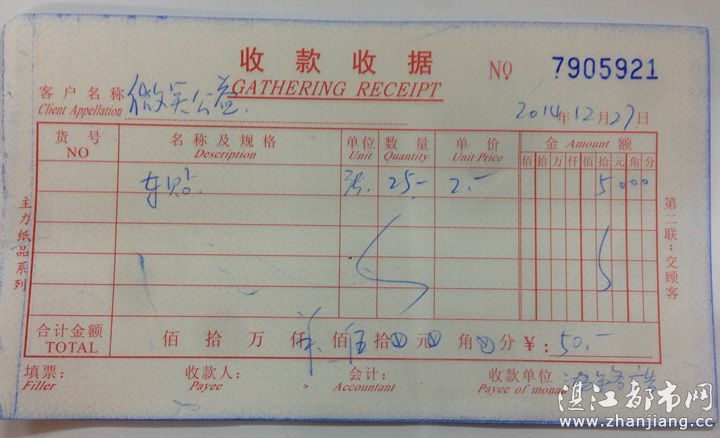 收款收据
GATHERING RECEIPT
NO 7905921
客户名称 微笑公益
Client Appellation
2014年12月27日
货号 名称及规格 单位 数量 单价 金 Amount 额
NO Description Unit Quantity Unit Price 佰拾万仟佰拾元角分
车贴 张 25- 2.- 5000
主力纸品系列
第二联:交顾客
合计金额 佰 拾 万 仟 佰 伍 拾 0 元 0 角 0 分 ¥: 50.-
TOTAL
填票: 收款人: 会计: 收款单位
Filler Payee Accountant Payee of money
湛江都市网
www.zhanjiang.cc